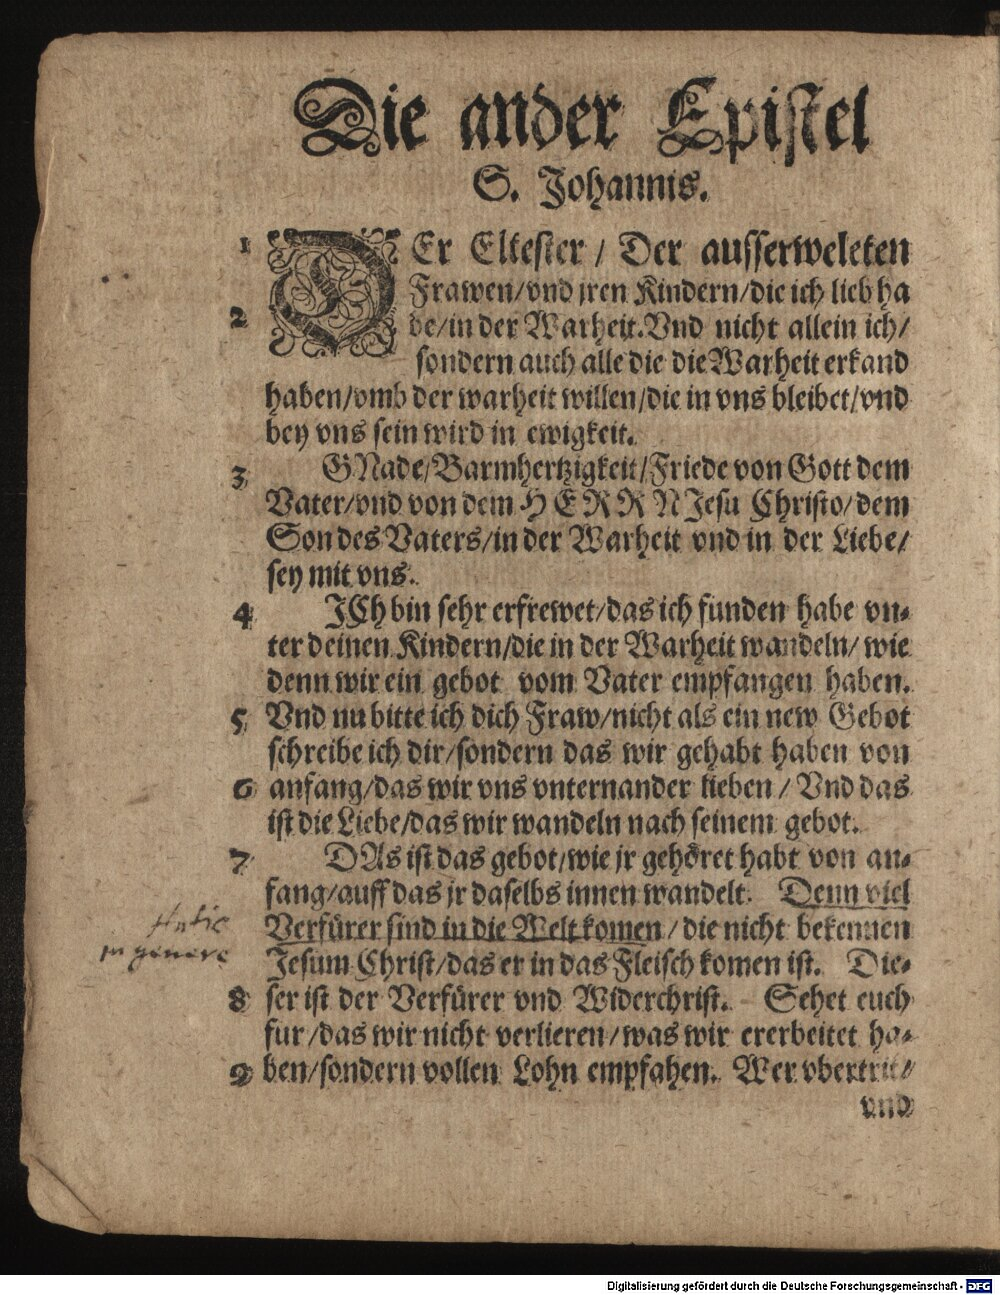 Die ander Epistel
S. Johannis.
1 DEr Eltester / Der ausserweleten
Frawen/vnd jren Kindern/die ich lieb ha
2 be/in der Warheit.Vnd nicht allein ich/
sondern auch alle die die Warheit erkand
haben/vmb der warheit willen/die in vns bleibet/vnd
bey vns sein wird in ewigkeit.
3 GNade/Barmhertzigkeit/Friede von Gott dem
Vater/vnd von dem HERRN Jesu Christo/dem
Son des Vaters/in der Warheit vnd in der Liebe/
sey mit vns.
4 JCh bin sehr erfrewet/das ich funden habe vn-
ter deinen Kindern/die in der Warheit wandeln/ wie
denn wir ein gebot vom Vater empfangen haben.
5 Vnd nu bitte ich dich Fraw/nicht als ein new Gebot
schreibe ich dir/sondern das wir gehabt haben von
6 anfang/das wir vns vnternander lieben / Vnd das
ist die Liebe/das wir wandeln nach seinem gebot.
7 DAs ist das gebot/wie jr gehöret habt von an-
fang/auff das jr daselbs innen wandelt. Denn viel
Verfürer sind in die Welt komen / die nicht bekennen
in genere
Jesum Christ/das er in das Fleisch komen ist. Die-
8 ser ist der Verfürer vnd Widerchrist. Sehet euch
fur /das wir nicht verlieren/was wir ererbeitet ha-
9 ben/sondern vollen Lohn empfahen. Wer vbertrit/
vnd
Digitalisierung gefördert durch die Deutsche Forschungsgemeinschaft - DFG